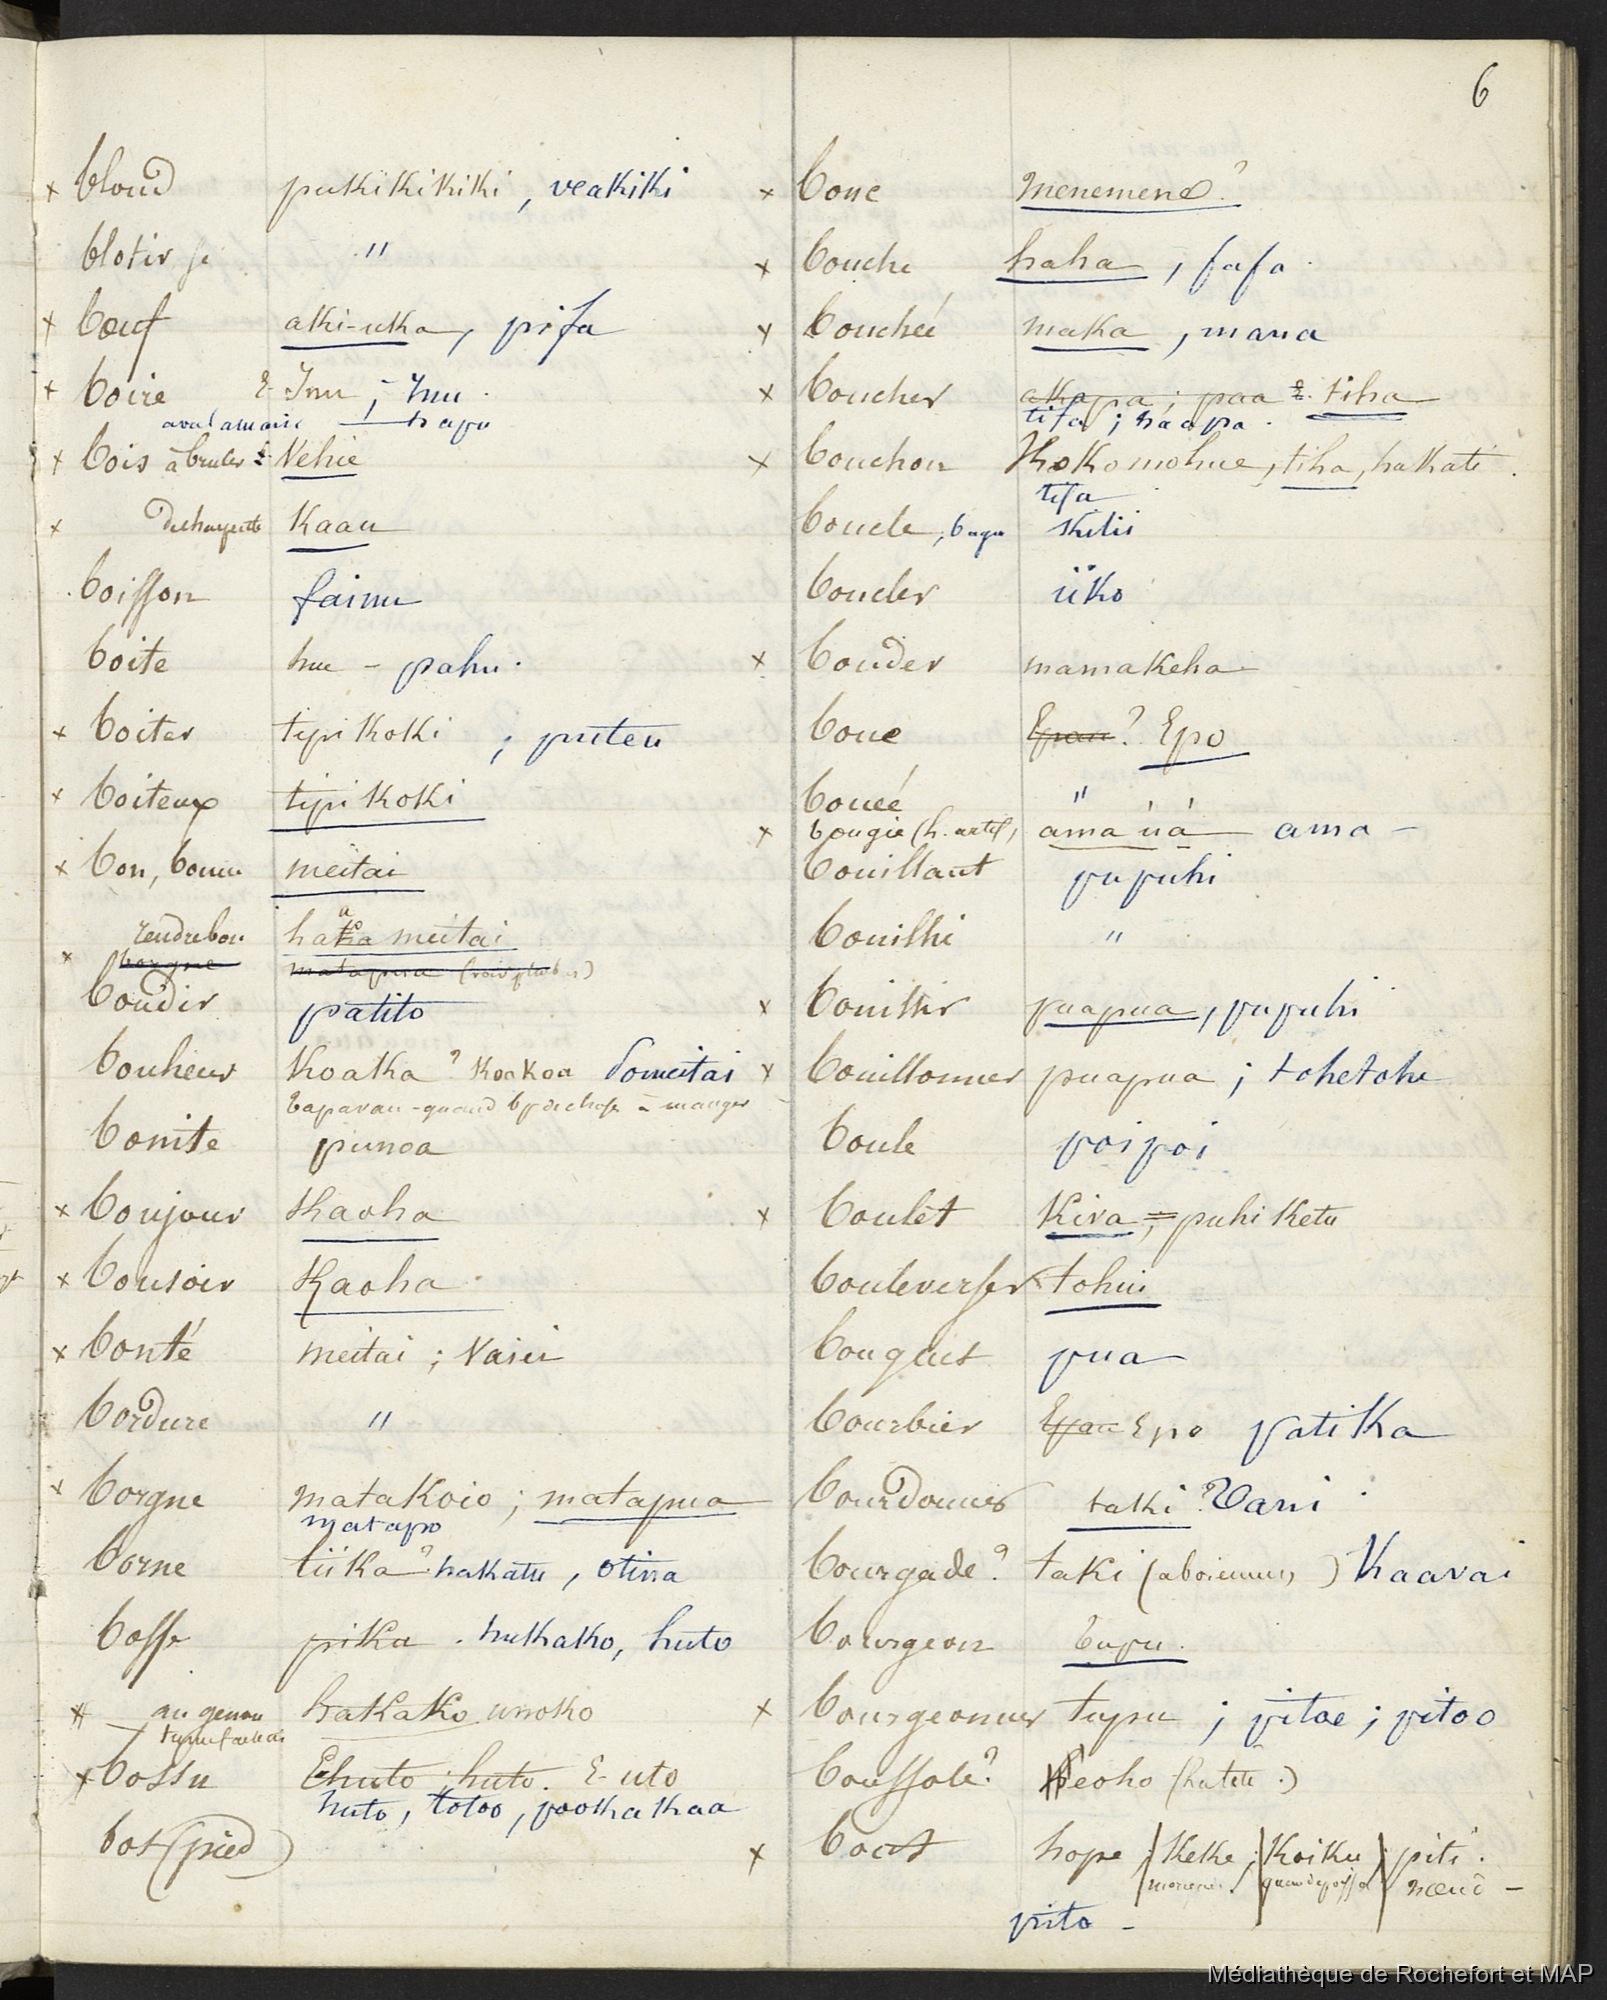 6
x blond pukikikiki, veakiki
blotir se "
x bœuf aki-uka, pifa
x boire E Inu ; Inu.
aval amaric hapu
x bois à bruler E Vehie
x de charpente Kaau
boisson fainu
boite hue - pahu.
x boiter tipikoki ; puteu
x boiteux tipikoki
x bon, bonne meitai
rendre bon haka meitai
x borgne matapua
bondir patito
bonheur Koaka? Koakoa
tapavau - quand à manger
bonite punoa
x bonjour Kaoha
x bonsoir Kaoha.
x bonté meitai ; Vaiei
bordure "
x borgne matakoio ; matapua
matapo
borne tiika? hakatu, otina
bosse pika. hukako, huto
x au genou hakako unoko
x bossu Ehuto ; huto. E uto
huto, totoo, pookakaa
bot (pied)
x bouc menemene?
x bouche haha, fafa
x bouchée maka, mana
x boucher akapa ; paa E. tiha
tifa ; háapa.
x bouchon Kokomohue, tiha, hakati.
tifa
boucle, bague Kilii
boucler üko
x bouder mamakeha
boue Epau? Epo
bouée "
x bougie (h. ama úá ama -
bouillant pupuhi
bouilli "
x bouillir puapua, pupuhi
x bouillonner puapua ; tohetohe
boule poipoi
x boulet Kiva = puhi Ketu
bouleverser tohui
bouquet pua
bourbier Epau Epo patika
bourdonner taki? Vavi
bourgade? taki (aboiement) Kaavai
bourgeon tupu.
x bourgeonner tupu ; pitoe ; pitoo
boussole? Heoho (hutete.)
x bout hope ; Keke ; Koiku ; piti.
nœud -
pito -
Médiathèque de Rochefort et MAP